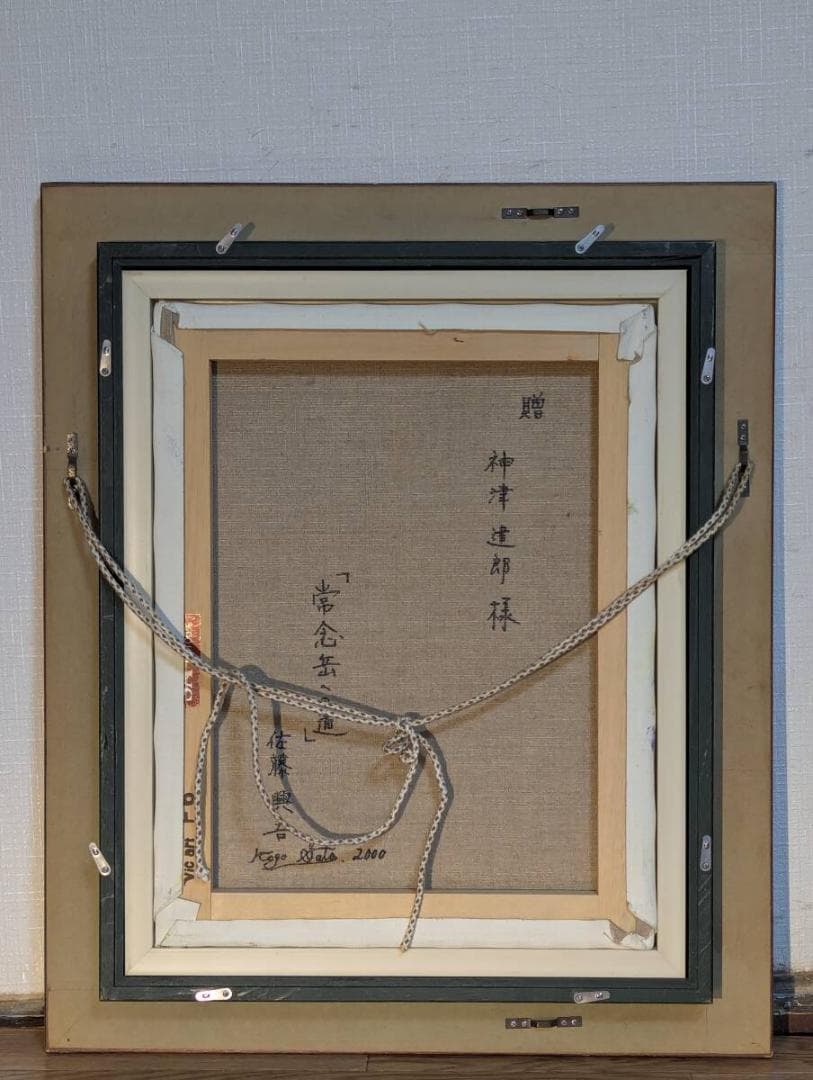 贈
神津 建郎 様
「常念岳への道」
佐藤 興吾
Kogo Sato. 2000
vic art